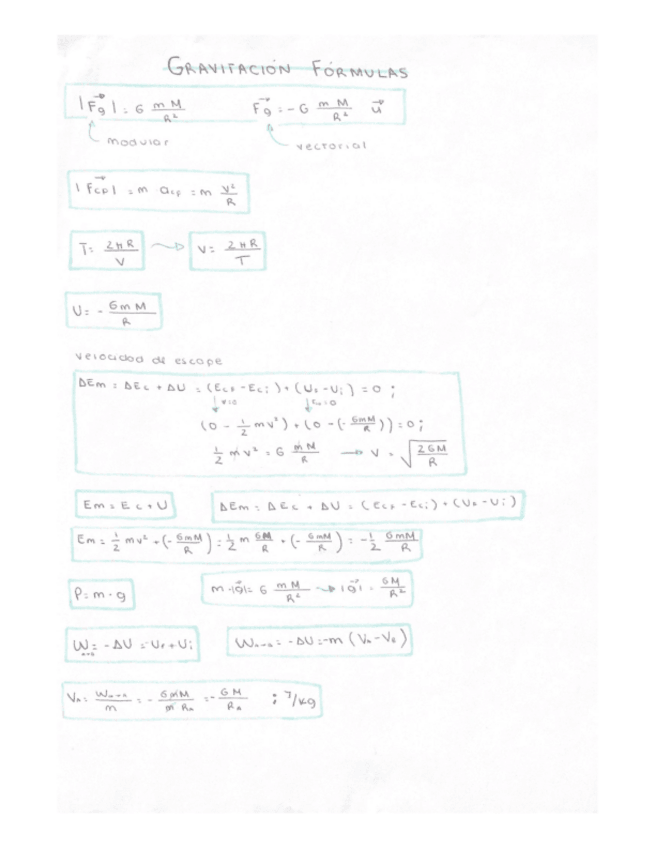 GRAVITACIÓN FÓRMULAS
|F⃗g| = G mM/R² F⃗g = -G mM/R² u⃗
modular vectorial
|F⃗cp| = m acp = m v²/R
T = 2πR/V → V = 2πR/T
U = - GmM/R
velocidad de escape
ΔEm = ΔEc + ΔU = (Ecf - Eci) + (Uf - Ui) = 0 ;
(0 - 1/2 mv²) + (0 - (- GmM/R)) = 0 ;
1/2 mv² = G mM/R → V = √(2GM/R)
Em = Ec + U ΔEm = ΔEc + ΔU = (Ecf - Eci) + (Uf - Ui)
Em = 1/2 mv² + (- GmM/R) = 1/2 m GM/R + (- GmM/R) = -1/2 GmM/R
P = m · g m·|g⃗| = G mM/R² → |g⃗| = GM/R²
W = -ΔU = Uf + Ui WA→B = -ΔU = -m (VA - VB)
VA = /m = - GmM/m RA = - GM/RA ; J/kg